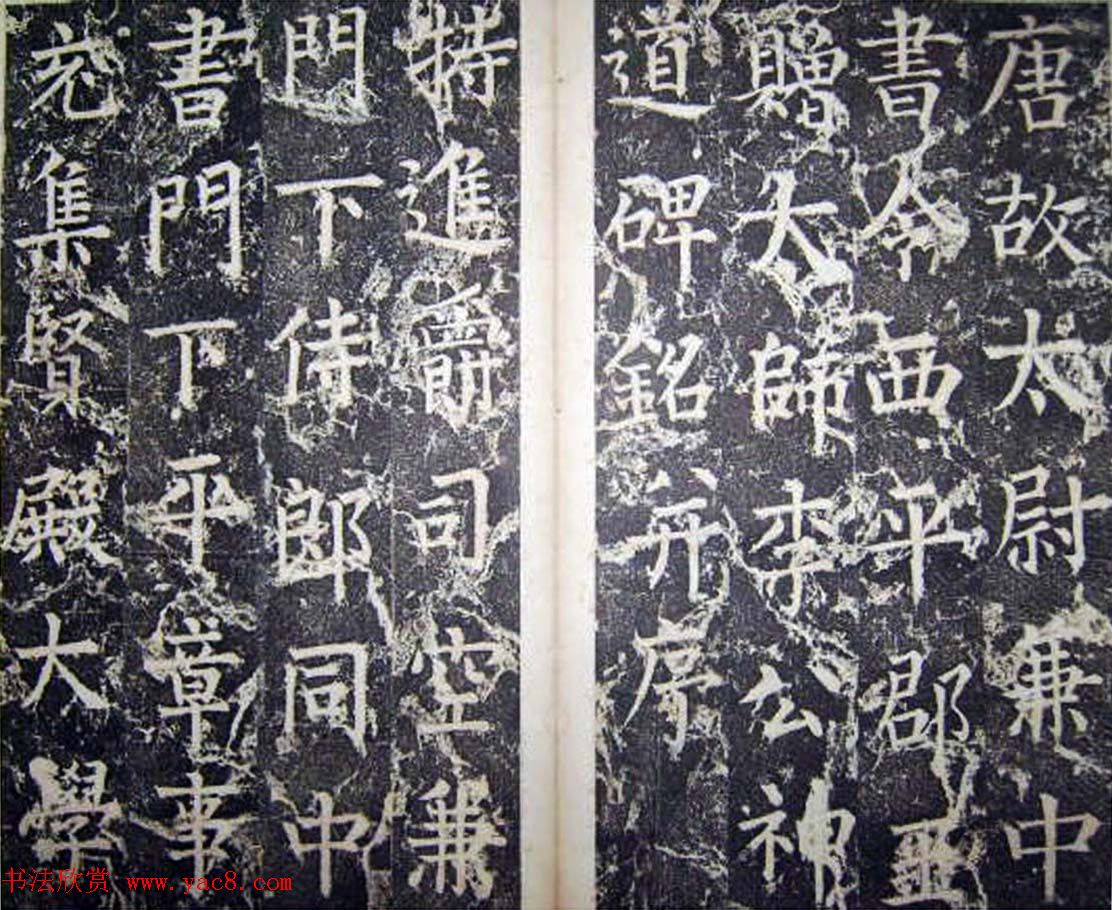 唐故太尉兼中
書令西平郡王
贈太師李公神
道碑銘并序
特進爵司空兼
門下侍郎同中
書門下平章事
充集賢殿大學
书法欣赏 www.yac8.com